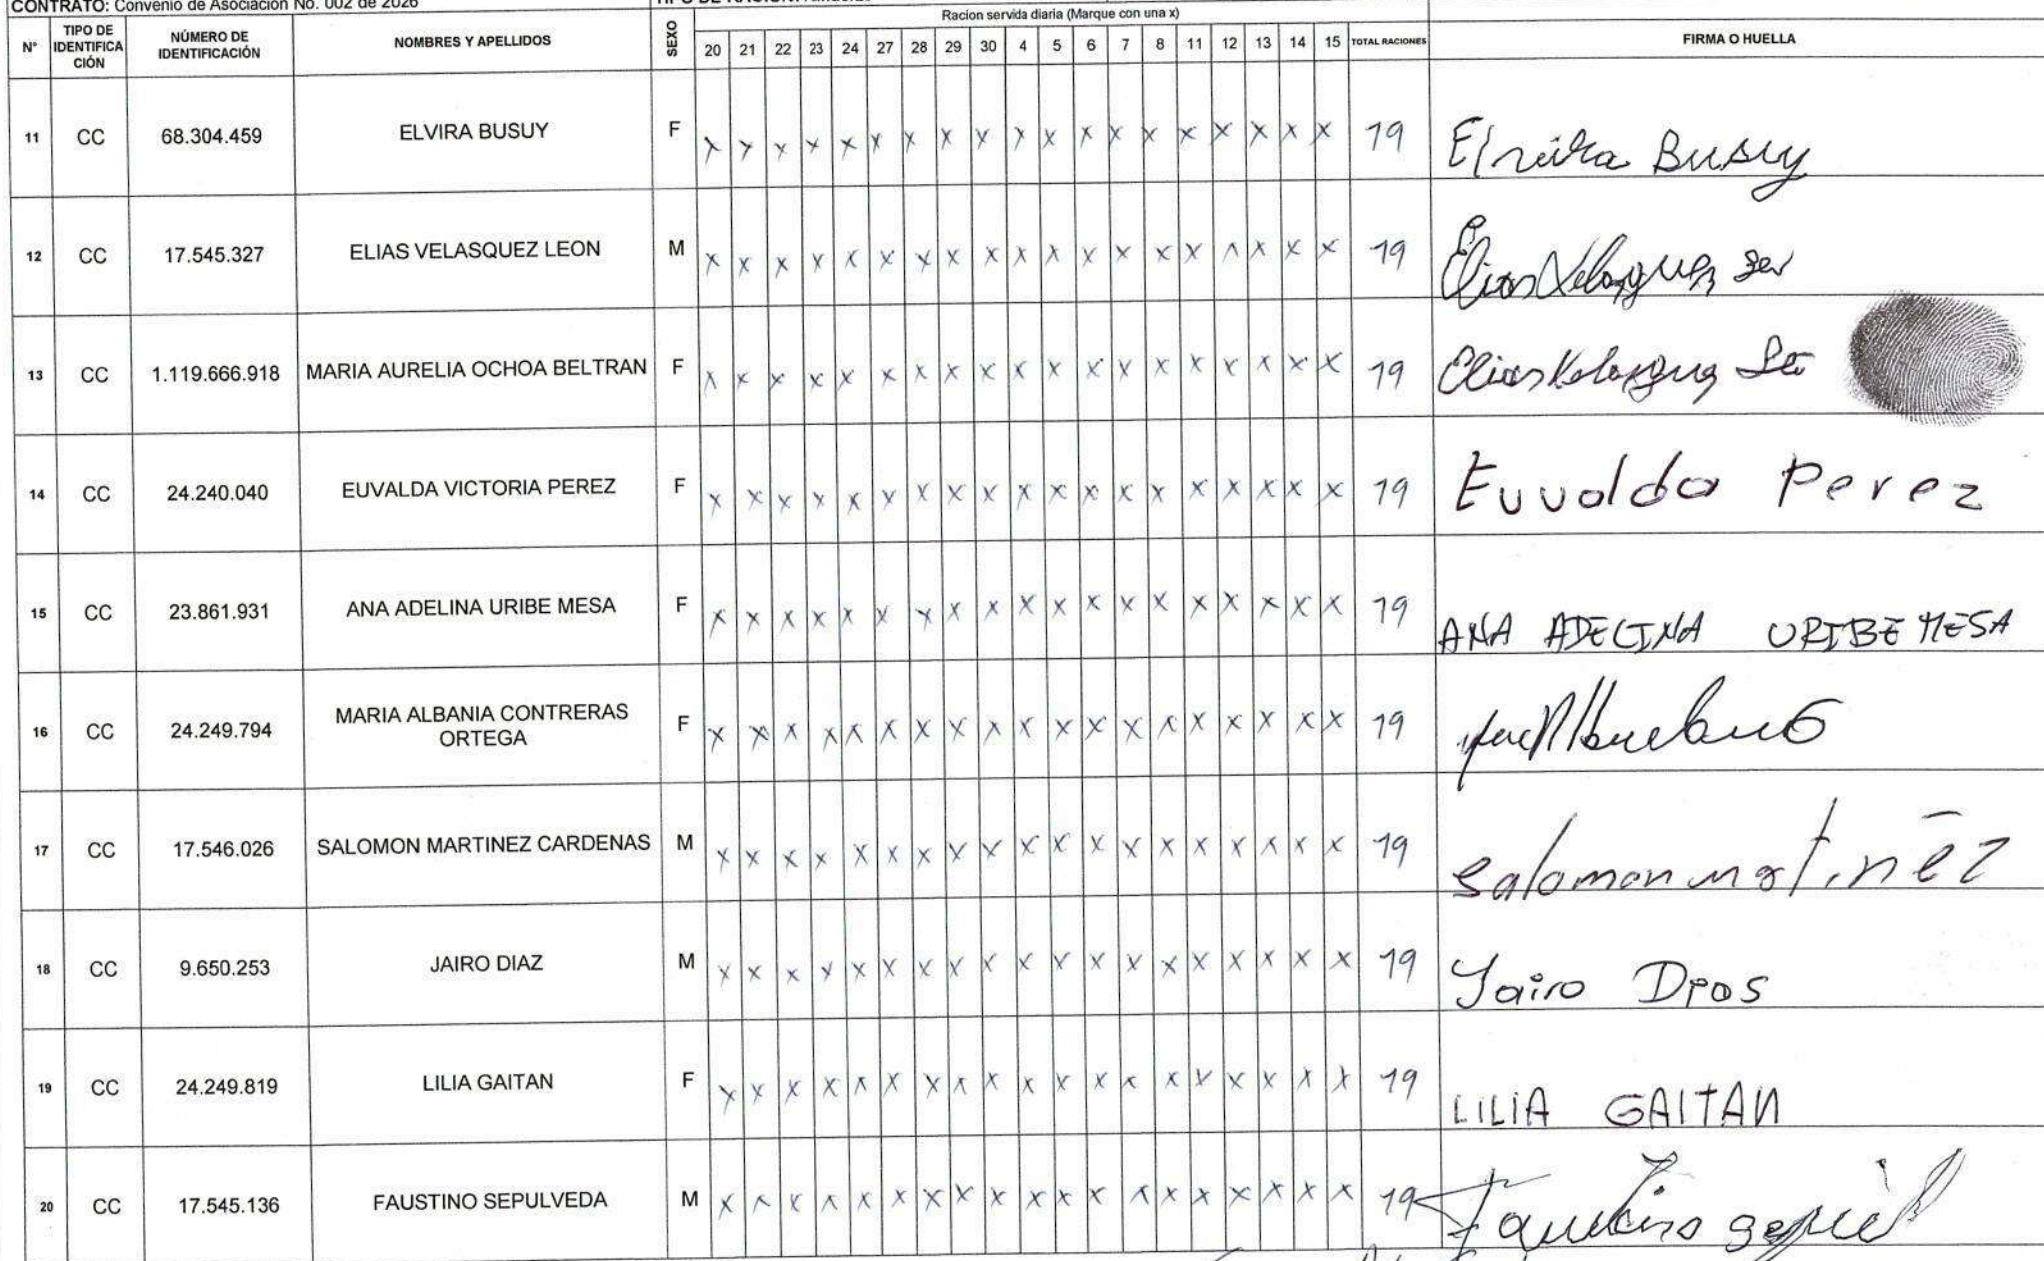 CONTRATO: Convenio de Asociación No. 002 de 2026
Racion servida diaria (Marque con una x)
N° TIPO DE IDENTIFICACIÓN NÚMERO DE IDENTIFICACIÓN NOMBRES Y APELLIDOS SEXO 20 21 22 23 24 27 28 29 30 4 5 6 7 8 11 12 13 14 15 TOTAL RACIONES FIRMA O HUELLA
11 CC 68.304.459 ELVIRA BUSUY F x x x x x x x x x x x x x x x x x x x 19 Elvira Busuy
12 CC 17.545.327 ELIAS VELASQUEZ LEON M x x x x x x x x x x x x x x x x x x x 19 Elias Velasquez
13 CC 1.119.666.918 MARIA AURELIA OCHOA BELTRAN F x x x x x x x x x x x x x x x x x x x 19 Elias
14 CC 24.240.040 EUVALDA VICTORIA PEREZ F x x x x x x x x x x x x x x x x x x x 19 Euvalda Perez
15 CC 23.861.931 ANA ADELINA URIBE MESA F x x x x x x x x x x x x x x x x x x x 19 ANA ADELINA URIBE MESA
16 CC 24.249.794 MARIA ALBANIA CONTRERAS ORTEGA F x x x x x x x x x x x x x x x x x x x 19
17 CC 17.546.026 SALOMON MARTINEZ CARDENAS M x x x x x x x x x x x x x x x x x x x 19 salomon martinez
18 CC 9.650.253 JAIRO DIAZ M x x x x x x x x x x x x x x x x x x x 19 Jairo Dias
19 CC 24.249.819 LILIA GAITAN F x x x x x x x x x x x x x x x x x x x 19 LILIA GAITAN
20 CC 17.545.136 FAUSTINO SEPULVEDA M x x x x x x x x x x x x x x x x x x x 19 Faustino